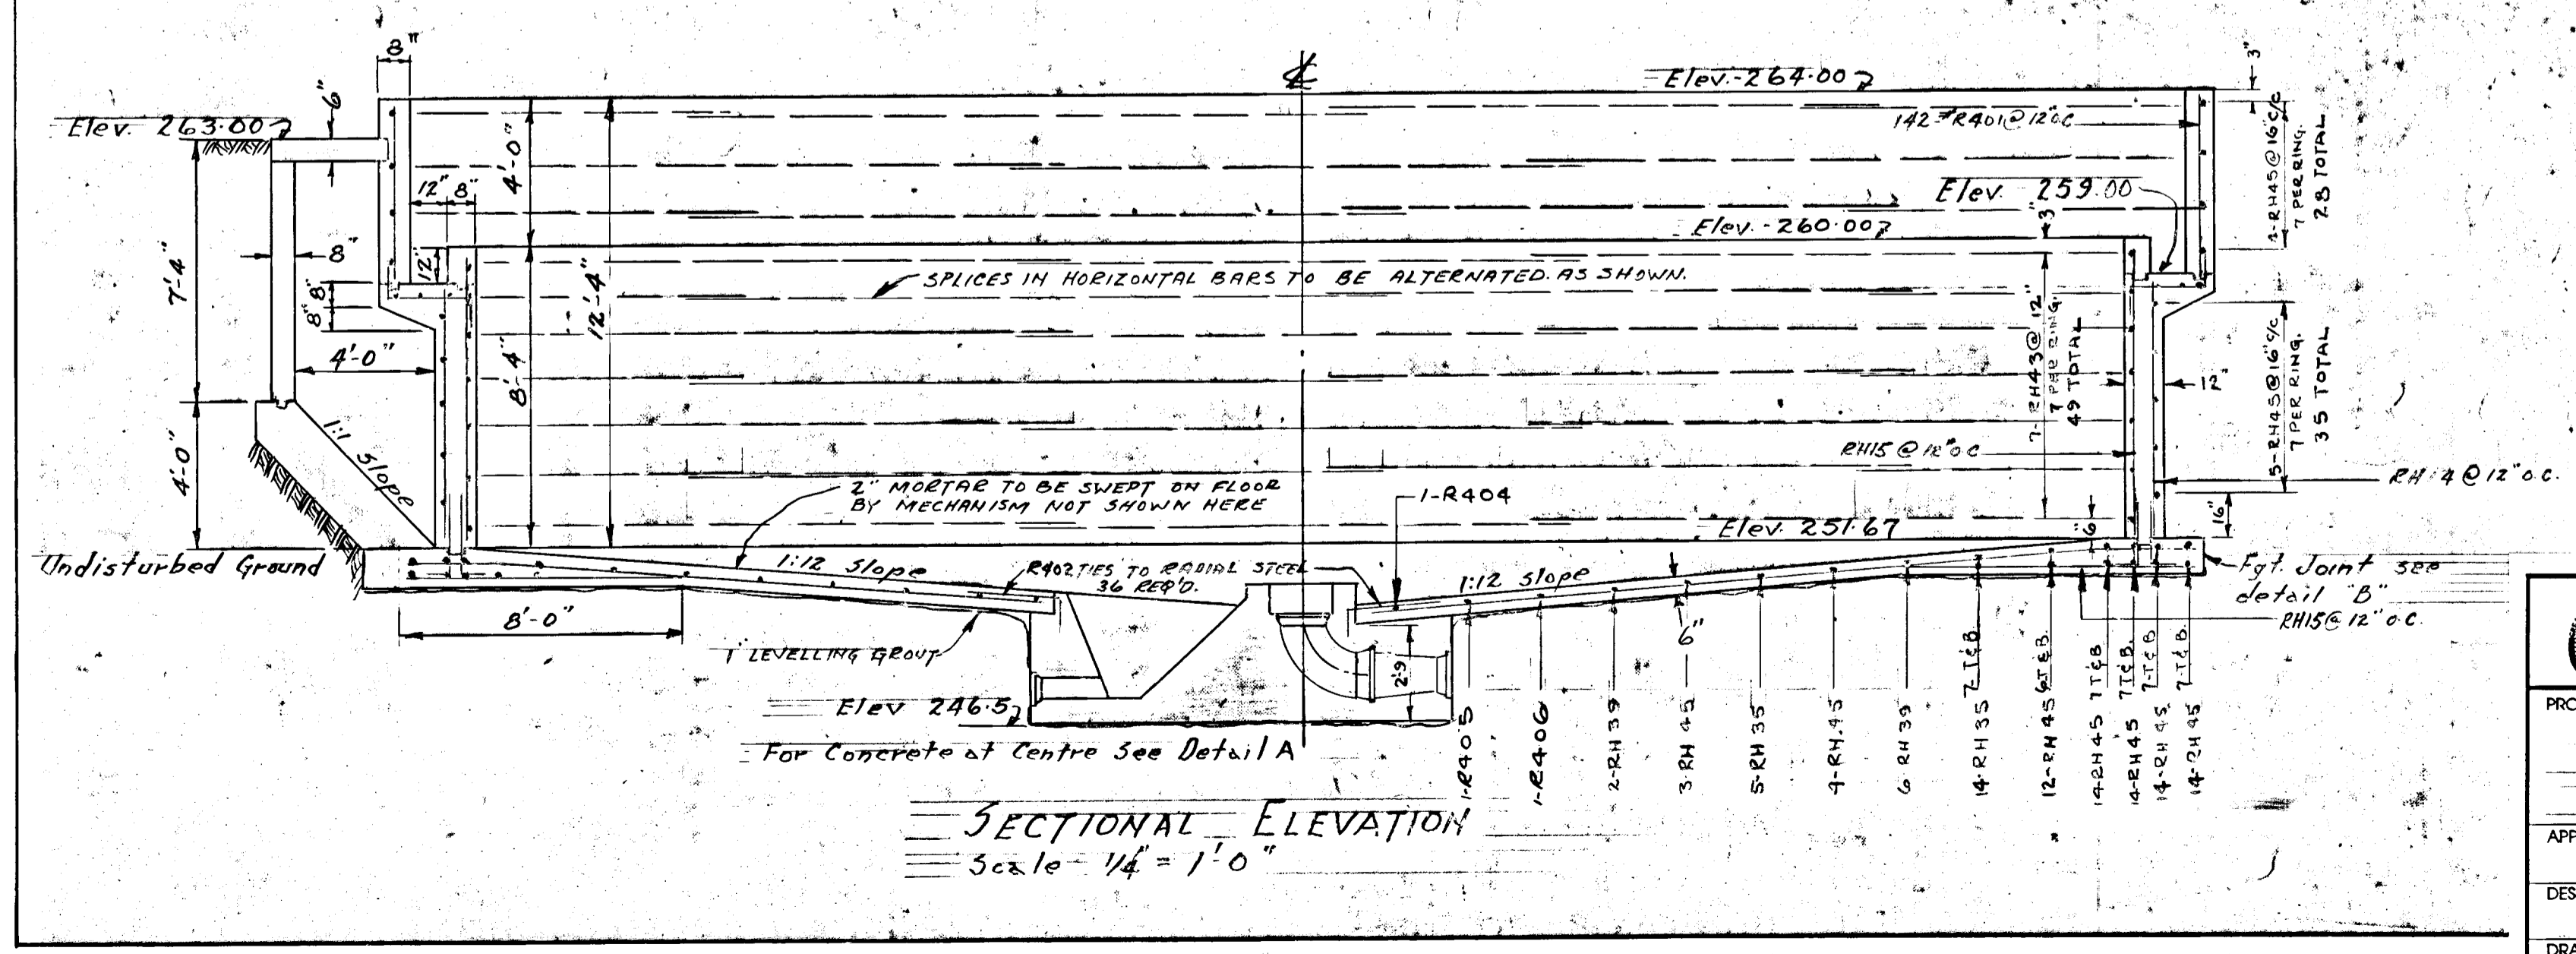 8"
Elev. 264.00
3"
Elev. 263.00
6"
142-#R401@12"OC
2-RH45@16"C/C
7 PER RING.
28 TOTAL
4'-0"
12" 8"
Elev. 259.00
Elev.-260.00
3"
7'-4"
8"
12"
12'-4"
SPLICES IN HORIZONTAL BARS TO BE ALTERNATED AS SHOWN.
8"
8"
4'-0"
8'-4"
7-RH43@12"
7 PER RING.
49 TOTAL
12"
5-RH45@16"C/C
7 PER RING.
35 TOTAL
4'-0"
1:1 Slope
RH15@12"OC
RH14@12"O.C.
2" MORTAR TO BE SWEPT ON FLOOR
BY MECHANISM NOT SHOWN HERE
1-R404
Elev. 251.67
6"
16"
Undisturbed Ground
1:12 Slope
R402 TIES TO RADIAL STEEL
36 REQ'D.
1:12 Slope
Fgt. Joint see
detail "B"
RH15@12"O.C.
8'-0"
1" LEVELLING GROUT
2'-9
6"
Elev 246.5
For Concrete at Centre See Detail A
1-R405
1-R406
2-RH39
3-RH45
5-RH35
4-RH.45
6-RH39
14-RH35 7-T&B.
12-RH45 6T&B.
14-RH45 7T&B
14-RH45 7T&B.
14-RH45 7-T&B
14-RH45 7-T&B.
SECTIONAL ELEVATION
Scale - 1/4" = 1'-0"
PRO
APP
DES
DRA